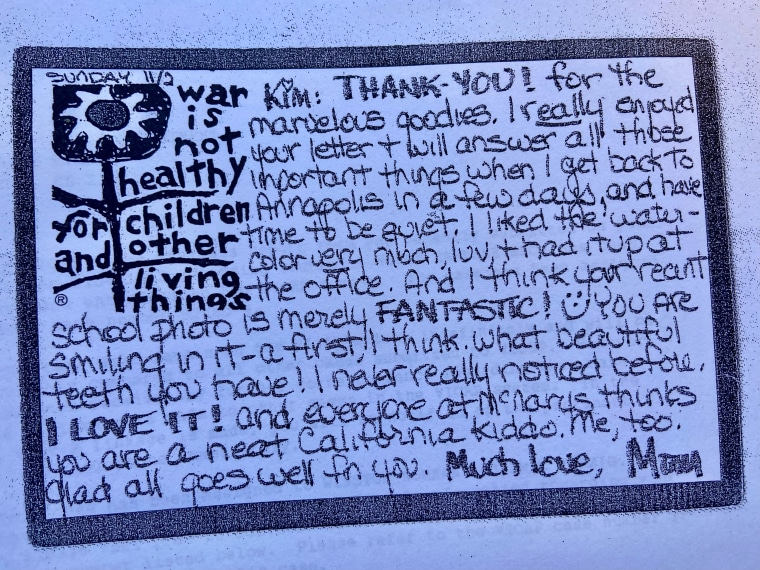 SUNDAY 11/2
war
is
not
healthy
for children
and other
living
things
®
Kim: THANK-YOU! for the
marvelous goodies. I really enjoyed
your letter + will answer all those
important things when I get back to
Annapolis in a few days, and have
time to be quiet. I liked the water-
color very much, luv, + had it up at
the office. And I think your recent
school photo is merely FANTASTIC! YOU ARE
smiling in it - a first, I think. what beautiful
teeth you have! I never really noticed before.
I LOVE IT! and everyone at McNarys thinks
you are a neat California Kiddo. Me, too.
Glad all goes well fn you. Much love, Mom
below. Please refer to